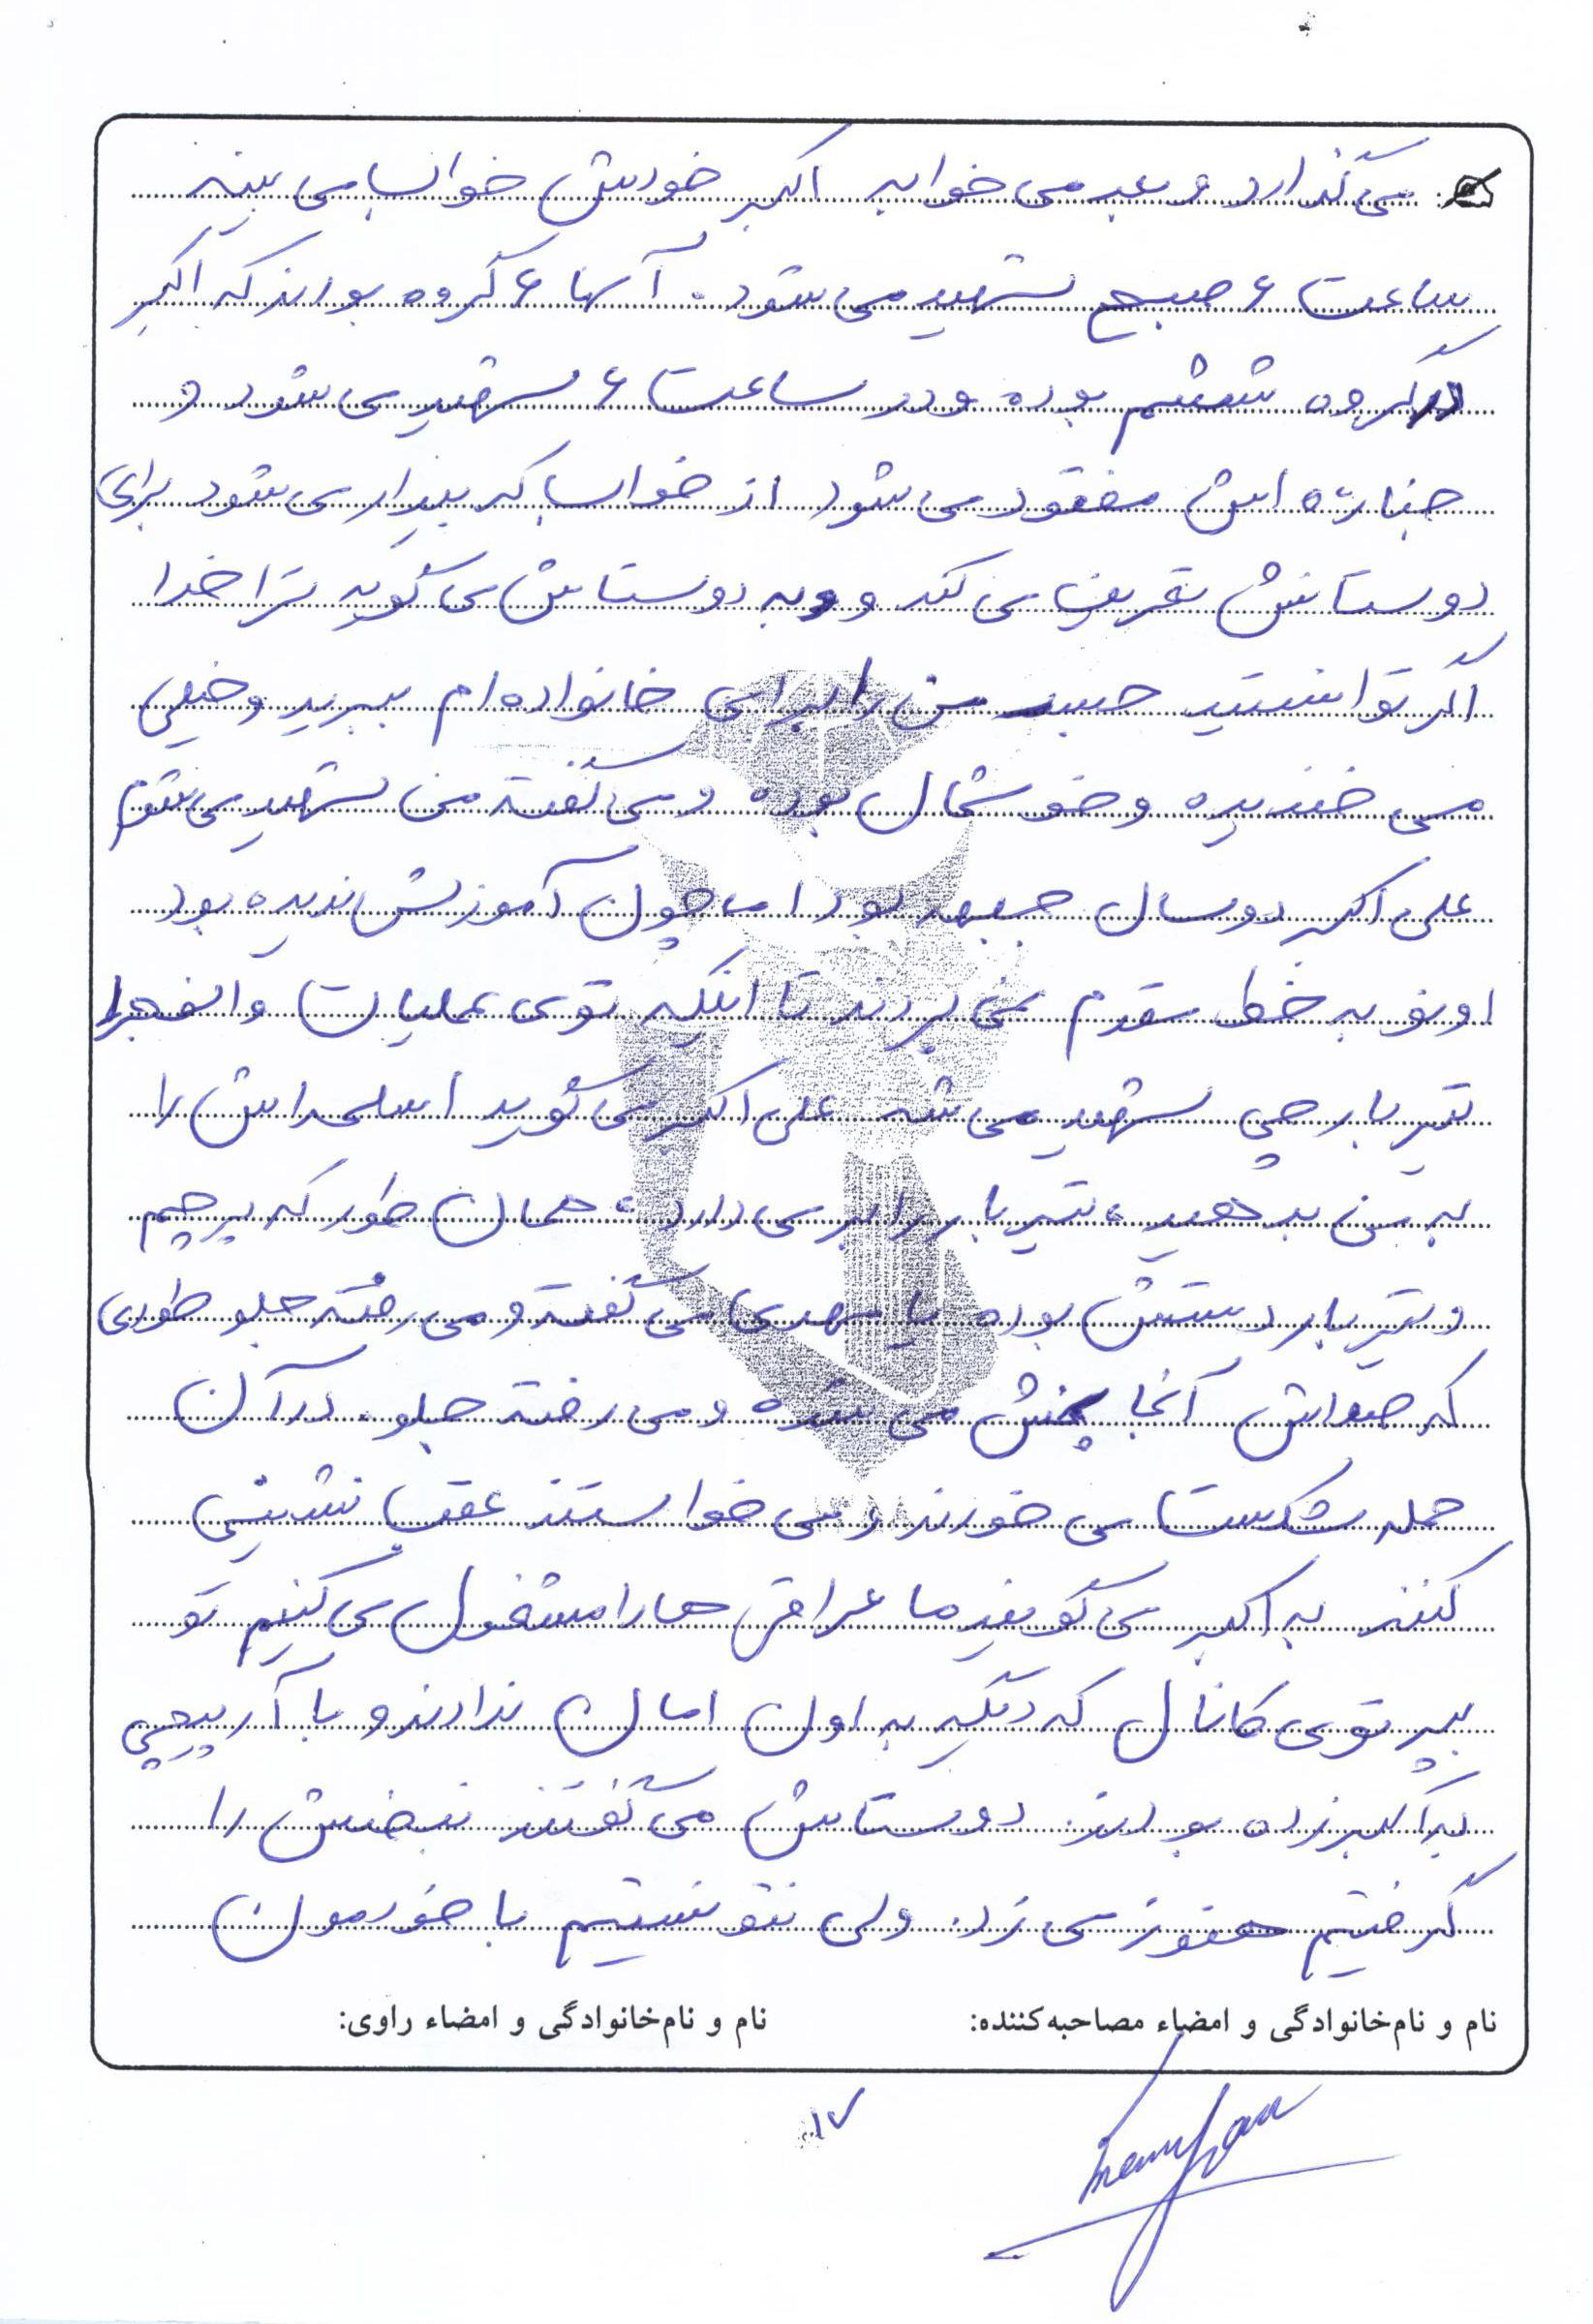 می گذارد و بعد می خوابد اکبر خودش خواب می بیند
ساعت ۶ صبح شهید می شود. آنها ۶ گروه بودند که اکبر
در گروه ششم بوده و در ساعت ۶ شهید می شود و
جنازه اش مفقود می شود از خواب که بیدار می شود برای
دوستانش تعریف می کند و به دوستانش می گوید ترا خدا
اگر توانستید جسد من را برای خانواده ام ببرید و خیلی
می خندیده و خوشحال بوده و می گفته من شهید می شوم
علی اکبر دو سال جبهه بود اما چون آموزش ندیده بود
اونو به خط مقدم نمی بردند تا اینکه توی عملیات والفجر۱
تیربارچی شهید می شه علی اکبر می گوید اسلحه اش را
به من بدهید، تیربار را برمی دارد، همان طور که پرچم
و تیربار دستش بوده یا مهدی می گفته و می رفته جلو طوری
که صداش آنجا پخش می شده و می رفته جلو. در آن
حمله شکست می خورند و می خواستند عقب نشینی
کنند به اکبر می گویند ما عراقی ها را مشغول می کنیم تو
بپر توی کانال که دیگه به اون امان ندادند و با آرپیچی
به اکبر زده بودند. دوستاش می گفتند نبضش را
گرفتیم هنوز می زد. ولی نتونستیم با خودمون
نام و نام‌خانوادگی و امضاء مصاحبه‌کننده:
نام و نام‌خانوادگی و امضاء راوی:
۱۷